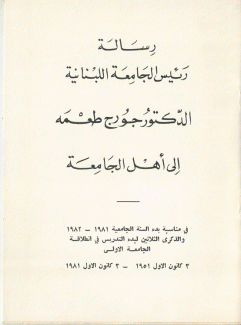 رسالة
رئيس الجامعة اللبنانية
الدكتور جورج طعمه
إلى أهل الجامعة
في مناسبة بدء السنة الجامعية ١٩٨١ – ١٩٨٢
والذكرى الثلاثين لبدء التدريس في انطلاقة
الجامعة الاولى
٣ كانون الاول ١٩٥١ – ٣ كانون الاول ١٩٨١